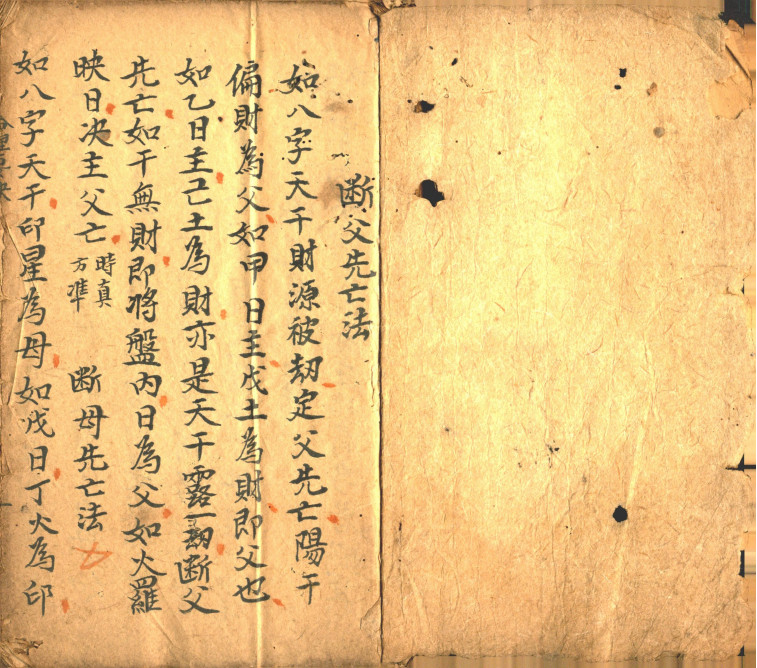 断父先亡法
如八字天干財源被劫定父先亡陽干
偏財為父如甲日主戊土為財即父也
如乙日主己土為財亦是天干露一劫断父
先亡如干無財即将盤内日為父如火羅
映日决主父亡時真方準 断母先亡法
如八字天干印星為母如戊日丁火為印